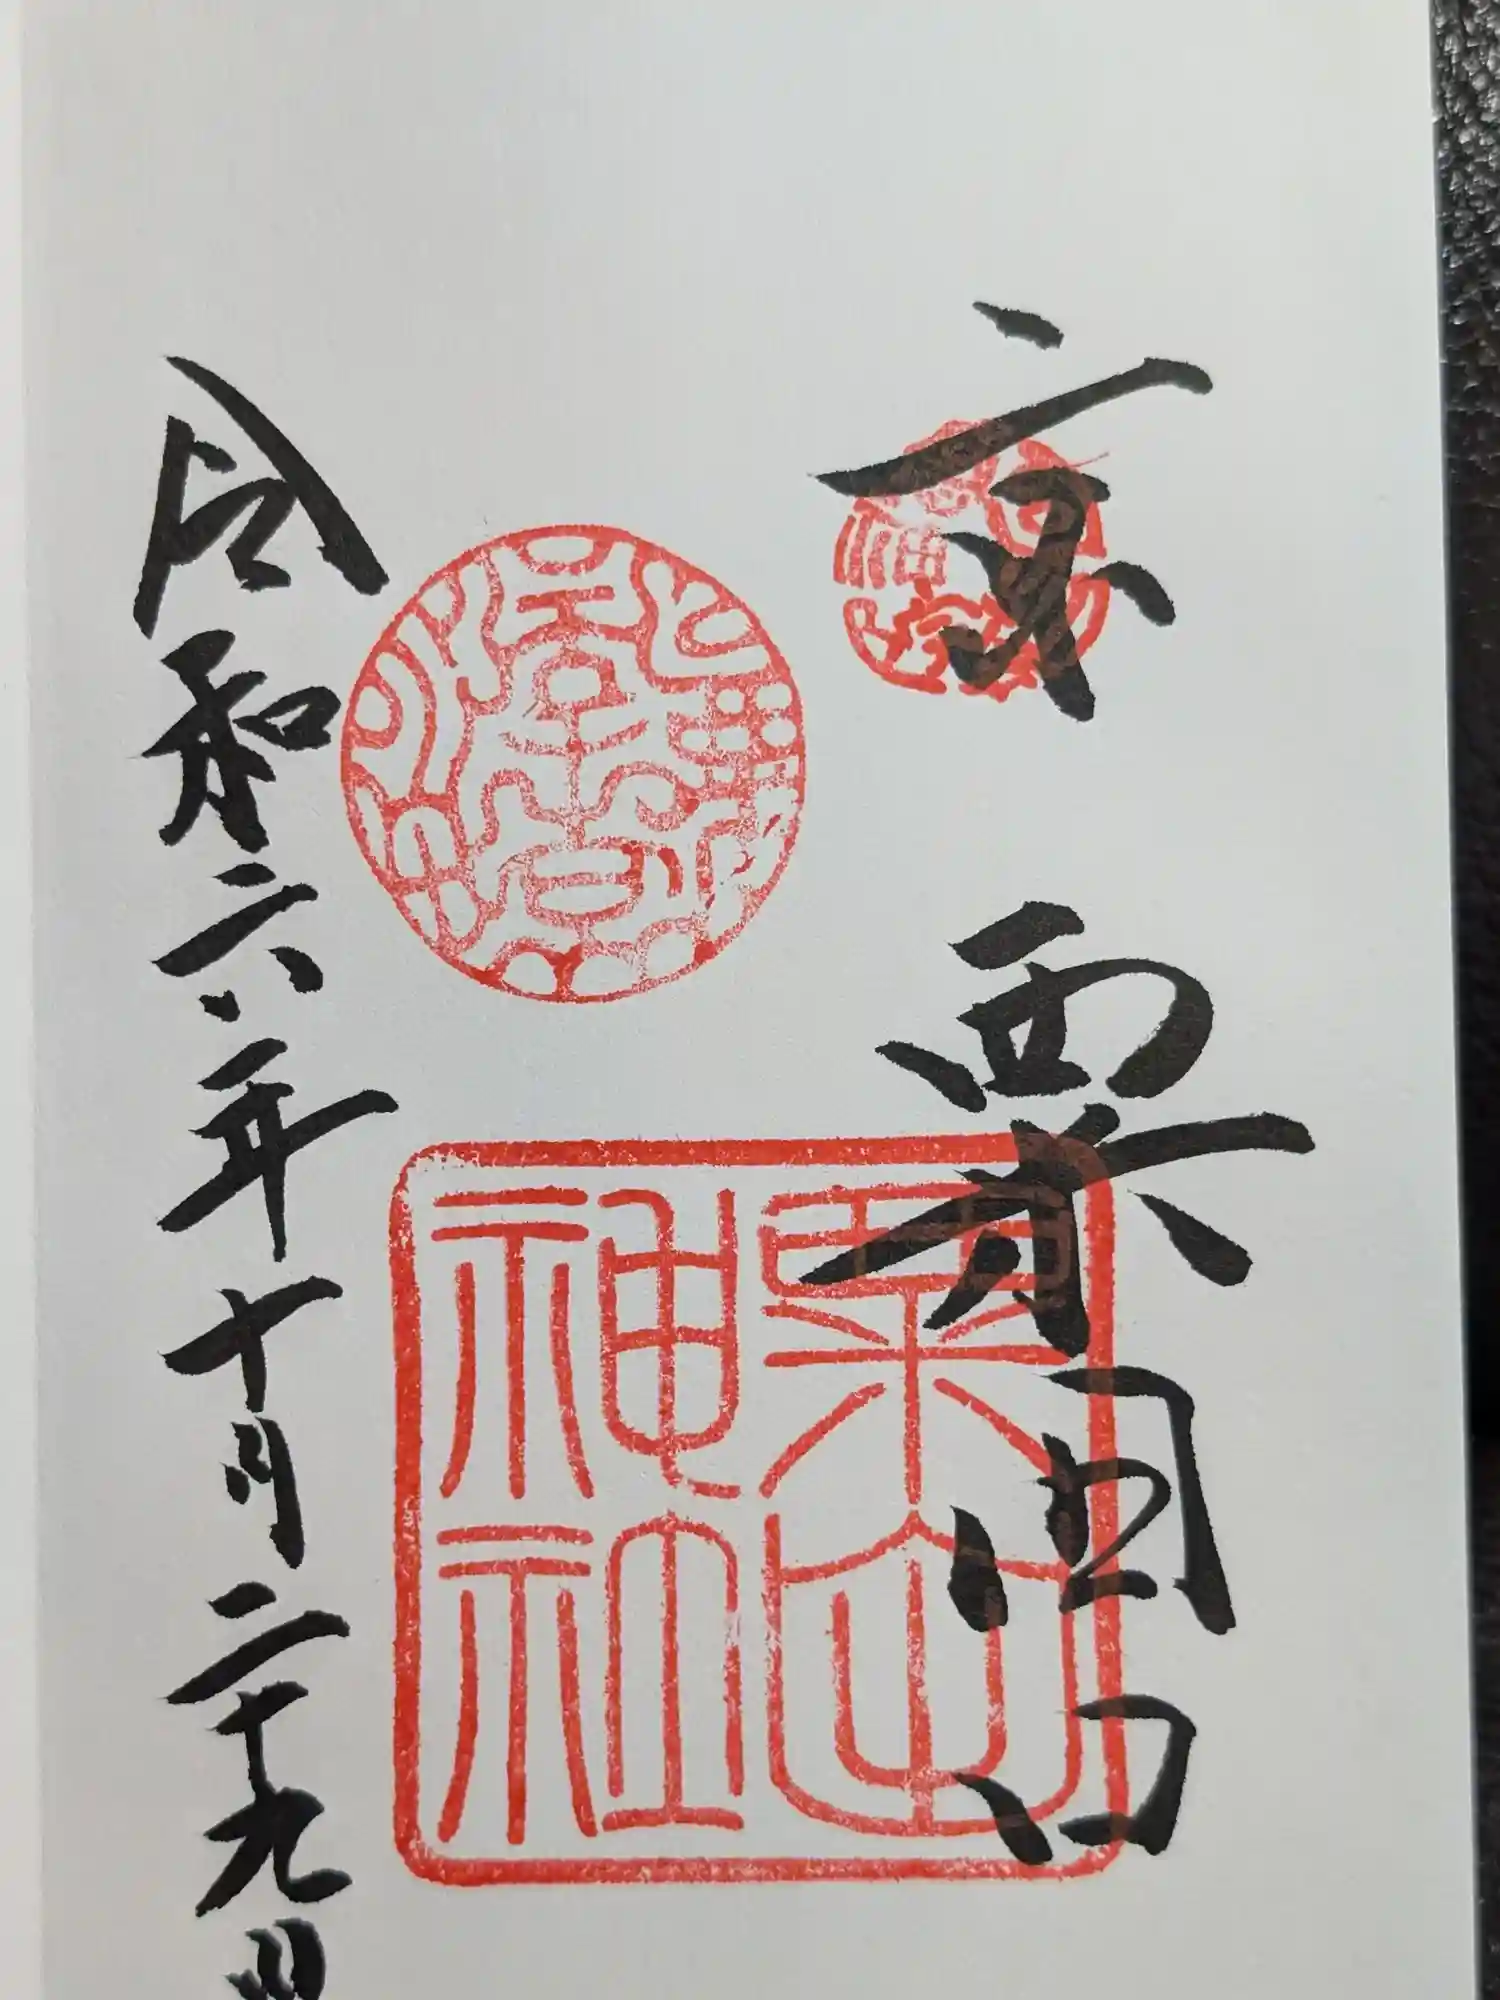 京 粟田口
粟田
神社
令和六年十月二十九日